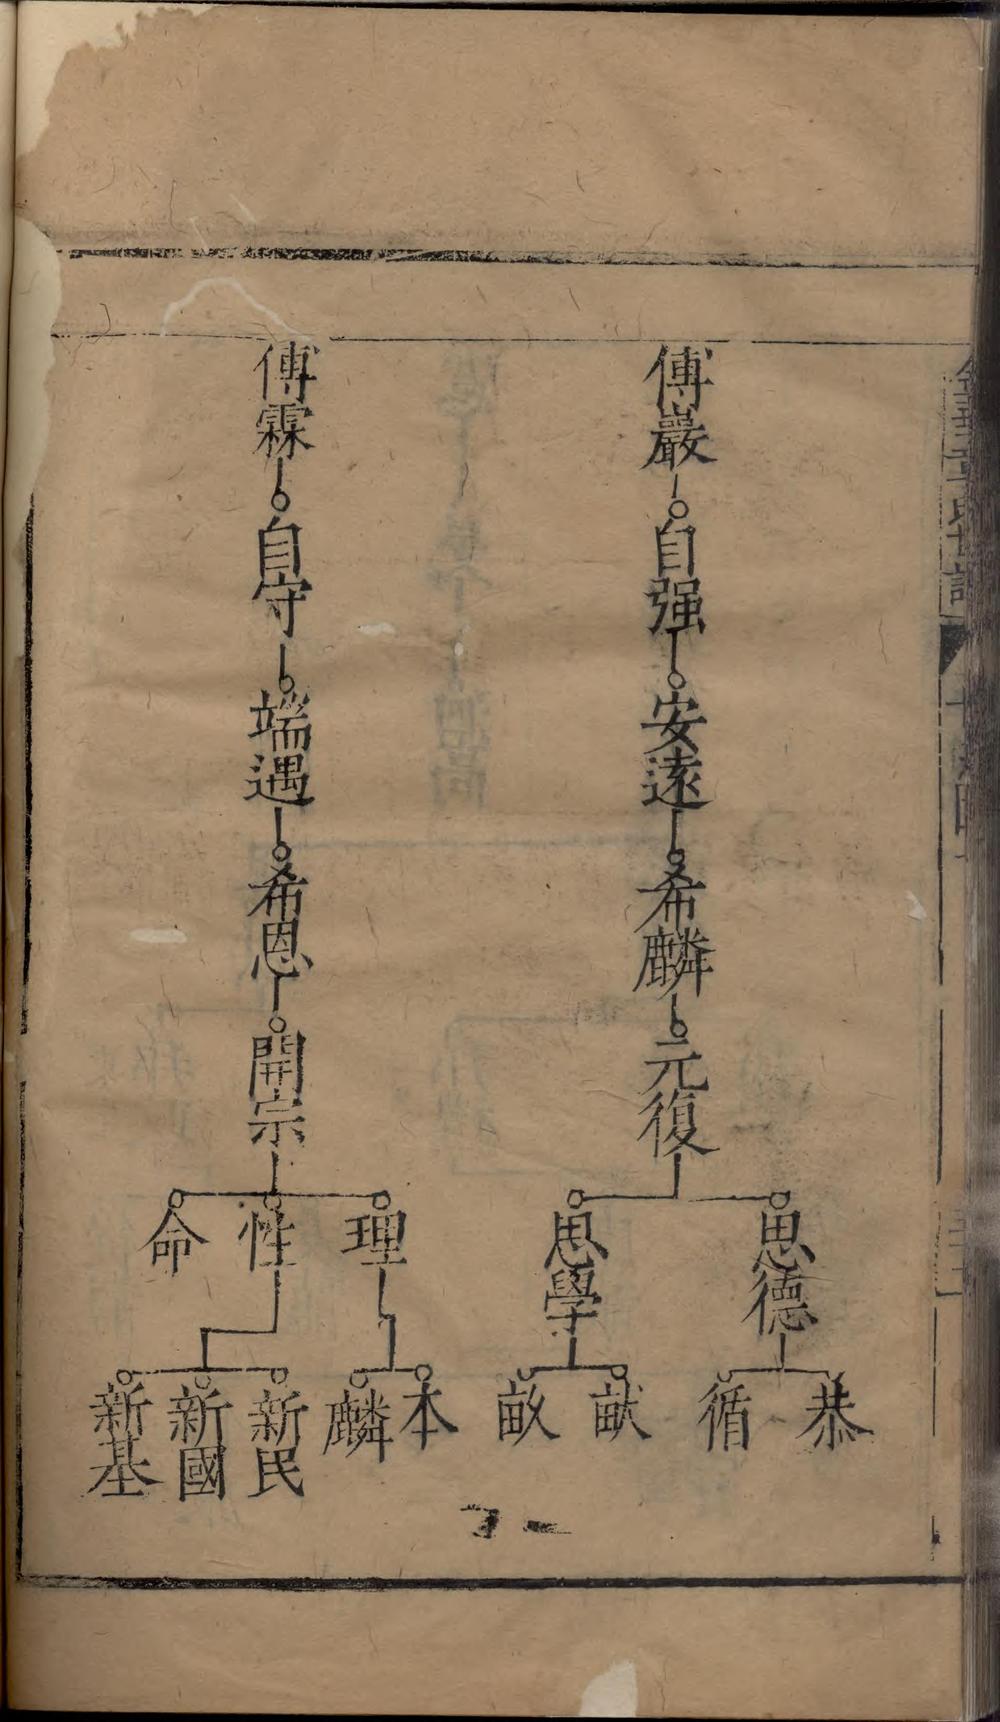 傅巖
自强
安遠
希麟
元復
思德
思學
恭
循
畝
傅霖
自守
端遇
希恩
開宗
理
性
命
本
麟
新民
新國
新基